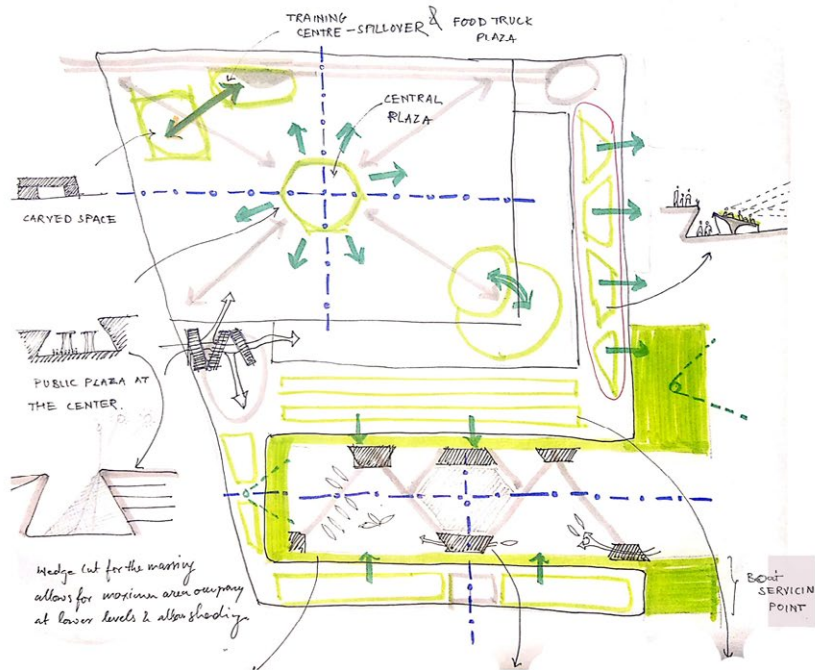 TRAINING
CENTRE - SPILLOVER & FOOD TRUCK
PLAZA
CENTRAL
PLAZA
CARVED SPACE
PUBLIC PLAZA AT
THE CENTER.
Wedge cut for the massing
allows for maximum area occupancy
at lower levels & allows shading.
BOAT
SERVICING
POINT